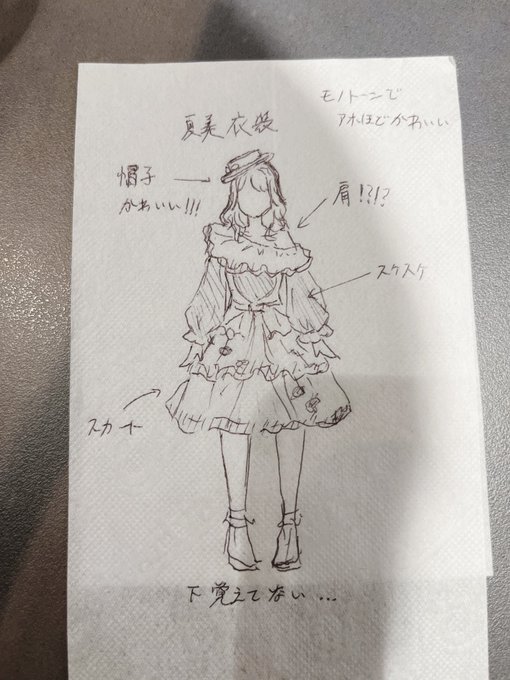 モノトーンで
アホほどかわいい
夏美衣装
帽子
かわいい!!!
肩!?!?
スケスケ
スカート
下覚えてない...